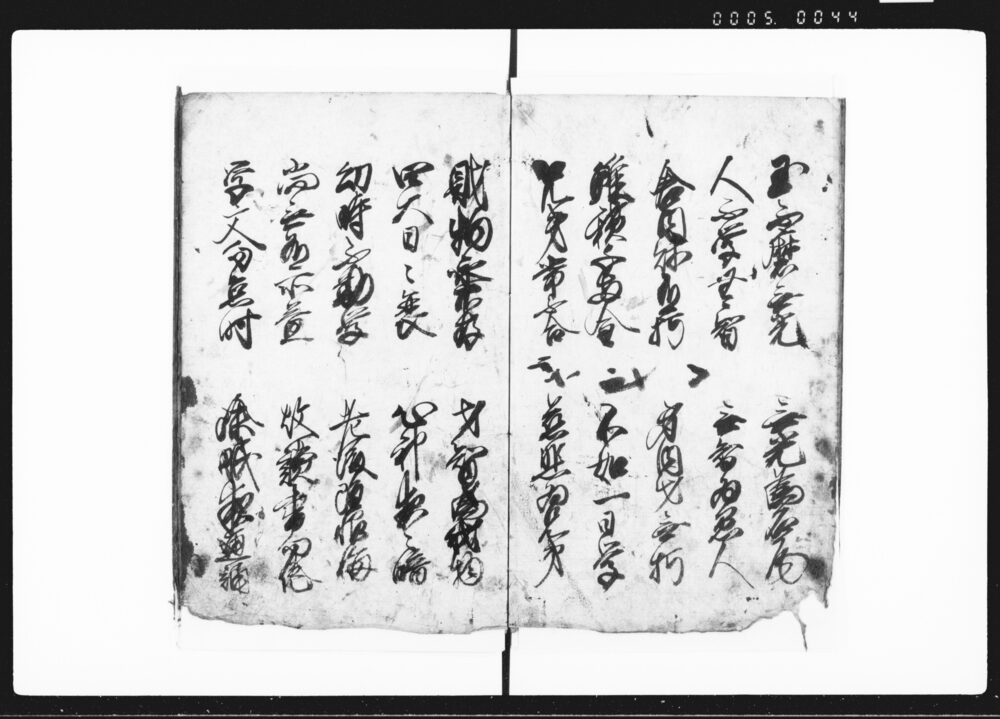 0005. 0044
玉不磨無光 無光為石瓦
人不学無智 無智為愚人
倉内財有朽 身内才無朽
雖積千両金 不如一日学
兄弟常不合 慈悲為兄弟
財物永不存 才智為財物
四大日々衰 心神夜々暗
幼時不勤学 老後雖恨悔
尚無有所益 故読書勿倦
学文勿怠时 除眠夜通誦